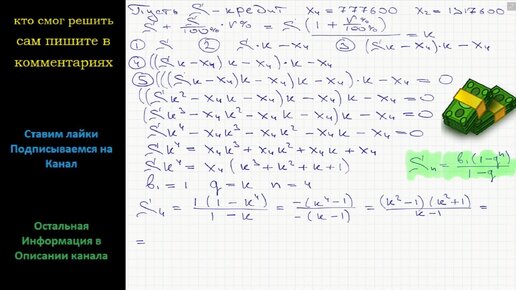 кто смог решить
сам пишите в
комментариях
Ставим лайки
Подписываемся на
Канал
Остальная
Информация в
Описании канала
Пусть S - кредит x₄ = 777600 x₂ = 1317600
S + S/100% · r% = S(1 + r%/100%) = k
① S ② S·k - x₄ ③ (Sk - x₄)·k - x₄
④ ((Sk - x₄)k - x₄)·k - x₄
⑤ (((Sk - x₄)k - x₄)k - x₄)·k - x₄ = 0
((Sk² - x₄k - x₄)k - x₄)k - x₄ = 0
(Sk³ - x₄k² - x₄k - x₄)k - x₄ = 0
Sk⁴ - x₄k³ - x₄k² - x₄k - x₄ = 0
Sk⁴ = x₄k³ + x₄k² + x₄k + x₄
Sk⁴ = x₄(k³ + k² + k + 1)
Sₙ = b₁(1-qⁿ)/1-q
b₁ = 1 q = k n = 4
S₄ = 1(1-k⁴)/1-k = -(k⁴-1)/-(k-1) = (k²-1)(k²+1)/k-1 =
=